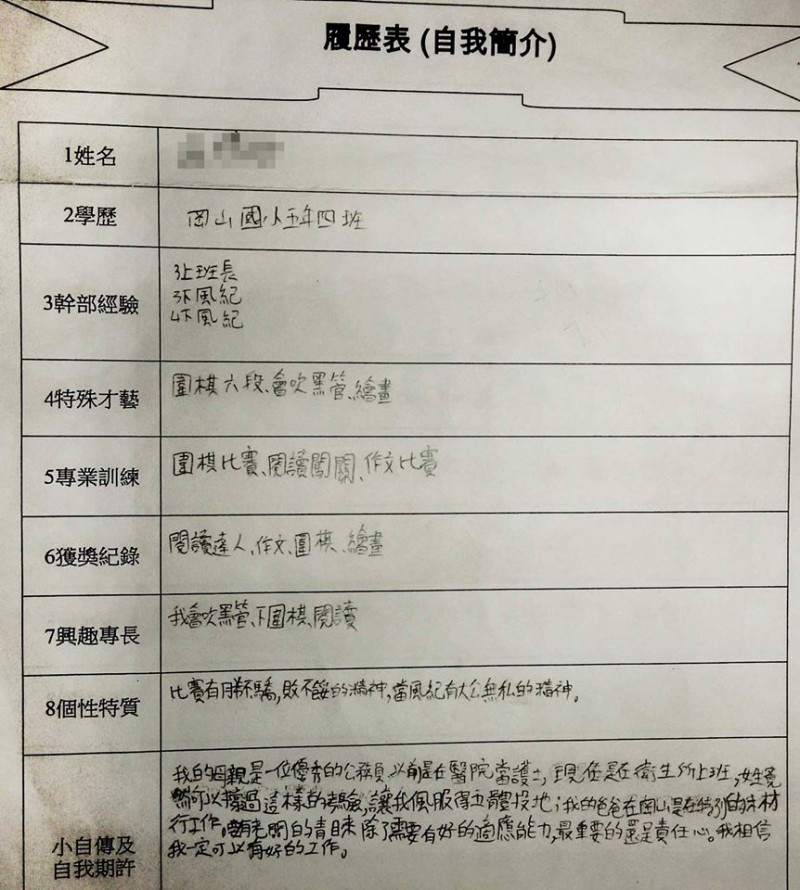 履歷表 (自我簡介)
1姓名
2學歷
岡山國小五年四班
3幹部經驗
3上班長
3下風紀
4下風紀
4特殊才藝
圍棋六段、會吹黑管、繪畫
5專業訓練
圍棋比賽、閱讀闖關、作文比賽
6獲獎紀錄
閱讀達人、作文、圍棋、繪畫
7興趣專長
我會吹黑管、下圍棋、閱讀
8個性特質
比賽有勝不驕,敗不餒的精神,當風紀有大公無私的精神。
小自傳及
自我期許
我的母親是一位優秀的公務員,以前是在醫院當護士,現任是在衛生所上班,她竟
然可以擁過這樣的考驗,讓我佩服得五體投地;我的爸爸在岡山是在特別的木材
行工作,要有老闆的青睞除了需要有好的適應能力,最重要的還是責任心。我相信
我一定可以有好的工作。